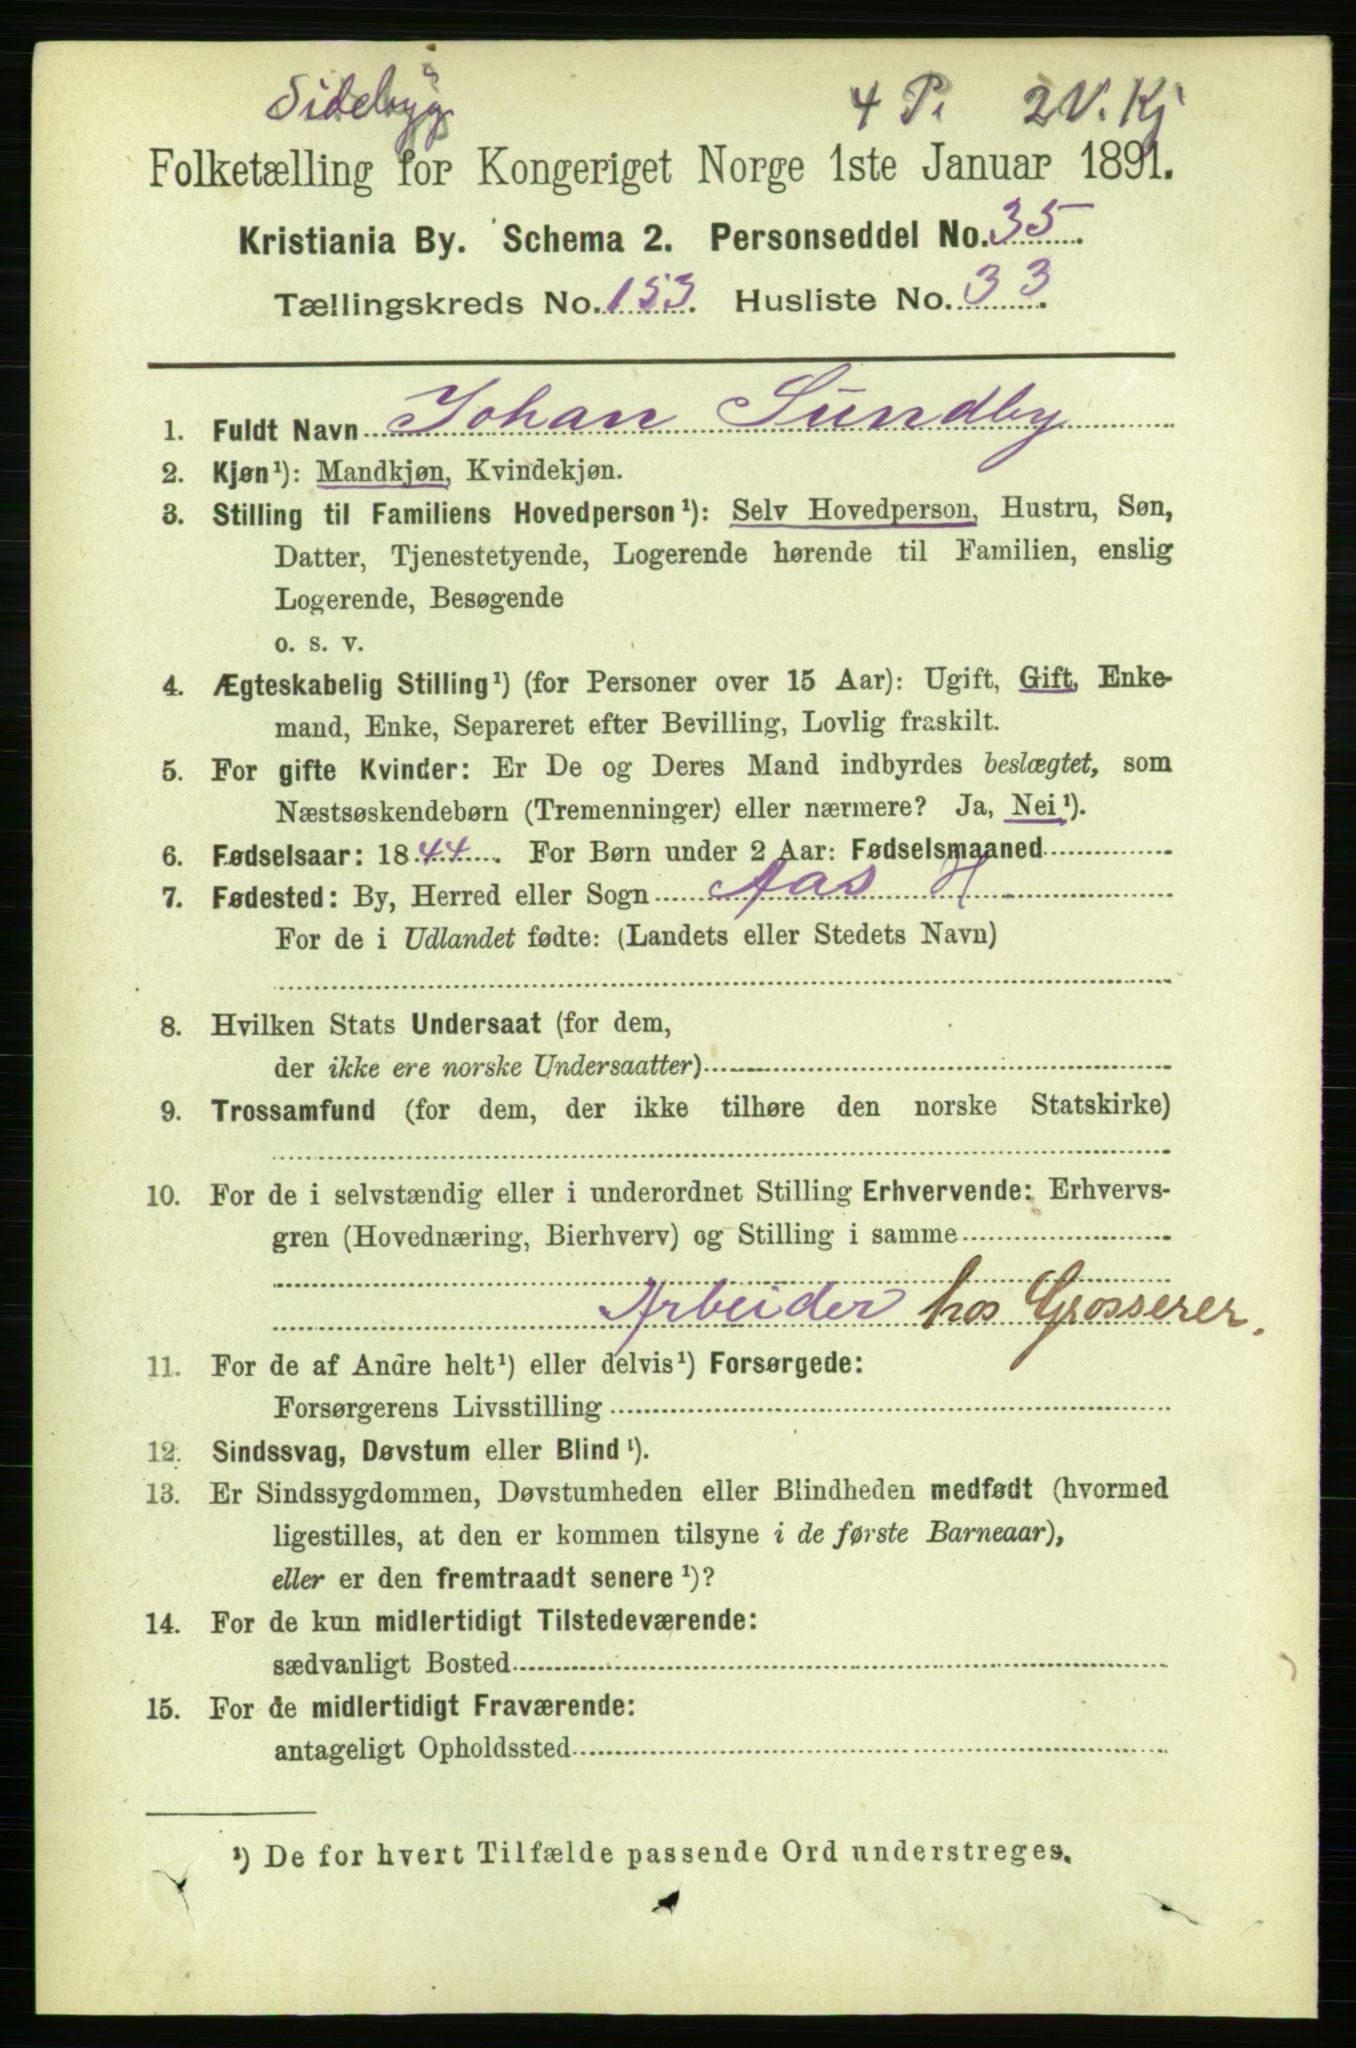 Sidebyg
4 P. 2 V. Kj
Folketælling for Kongeriget Norge 1ste Januar 1891.
Kristiania By. Schema 2. Personseddel No. 35.
Tællingskreds No. 153. Husliste No. 33.
1. Fuldt Navn Johan Sundby
2. Kjøn¹): Mandkjøn, Kvindekjøn.
3. Stilling til Familiens Hovedperson¹): Selv Hovedperson, Hustru, Søn,
Datter, Tjenestetyende, Logerende hørende til Familien, enslig
Logerende, Besøgende
o. s. v.
4. Ægteskabelig Stilling¹) (for Personer over 15 Aar): Ugift, Gift, Enke-
mand, Enke, Separeret efter Bevilling, Lovlig fraskilt.
5. For gifte Kvinder: Er De og Deres Mand indbyrdes beslægtet, som
Næstsøskendebørn (Tremenninger) eller nærmere? Ja, Nei¹).
6. Fødselsaar: 1844. For Børn under 2 Aar: Fødselsmaaned
7. Fødested: By, Herred eller Sogn Aas H
For de i Udlandet fødte: (Landets eller Stedets Navn)
8. Hvilken Stats Undersaat (for dem,
der ikke ere norske Undersaatter)
9. Trossamfund (for dem, der ikke tilhøre den norske Statskirke)
10. For de i selvstændig eller i underordnet Stilling Erhvervende: Erhvervs-
gren (Hovednæring, Bierhverv) og Stilling i samme
Arbeider hos Grosserer.
11. For de af Andre helt¹) eller delvis¹) Forsørgede:
Forsørgerens Livsstilling
12. Sindssvag, Døvstum eller Blind¹).
13. Er Sindssygdommen, Døvstumheden eller Blindheden medfødt (hvormed
ligestilles, at den er kommen tilsyne i de første Barneaar),
eller er den fremtraadt senere¹)?
14. For de kun midlertidigt Tilstedeværende:
sædvanligt Bosted
15. For de midlertidigt Fraværende:
antageligt Opholdssted
¹) De for hvert Tilfælde passende Ord understreges.